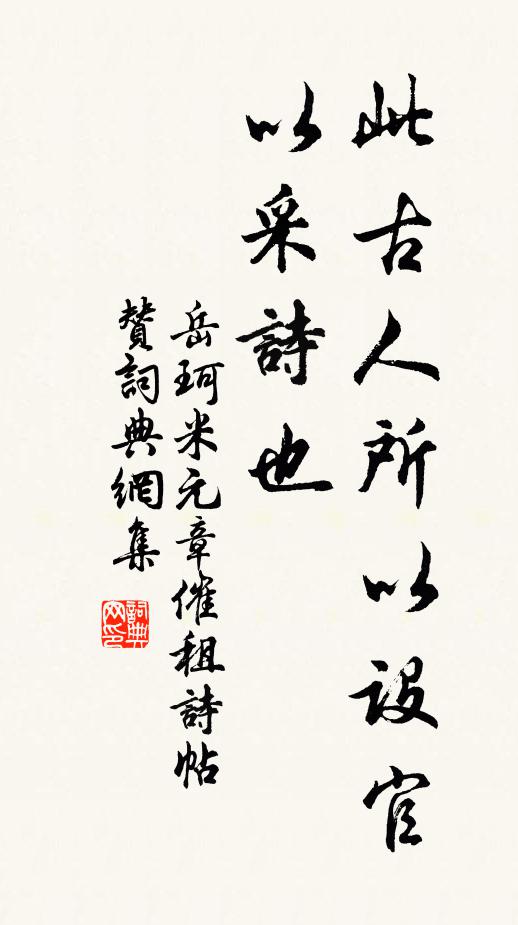 此古人所以設官
以采詩也
岳珂米元章催租詩帖
贊詞典網集
詞典网印